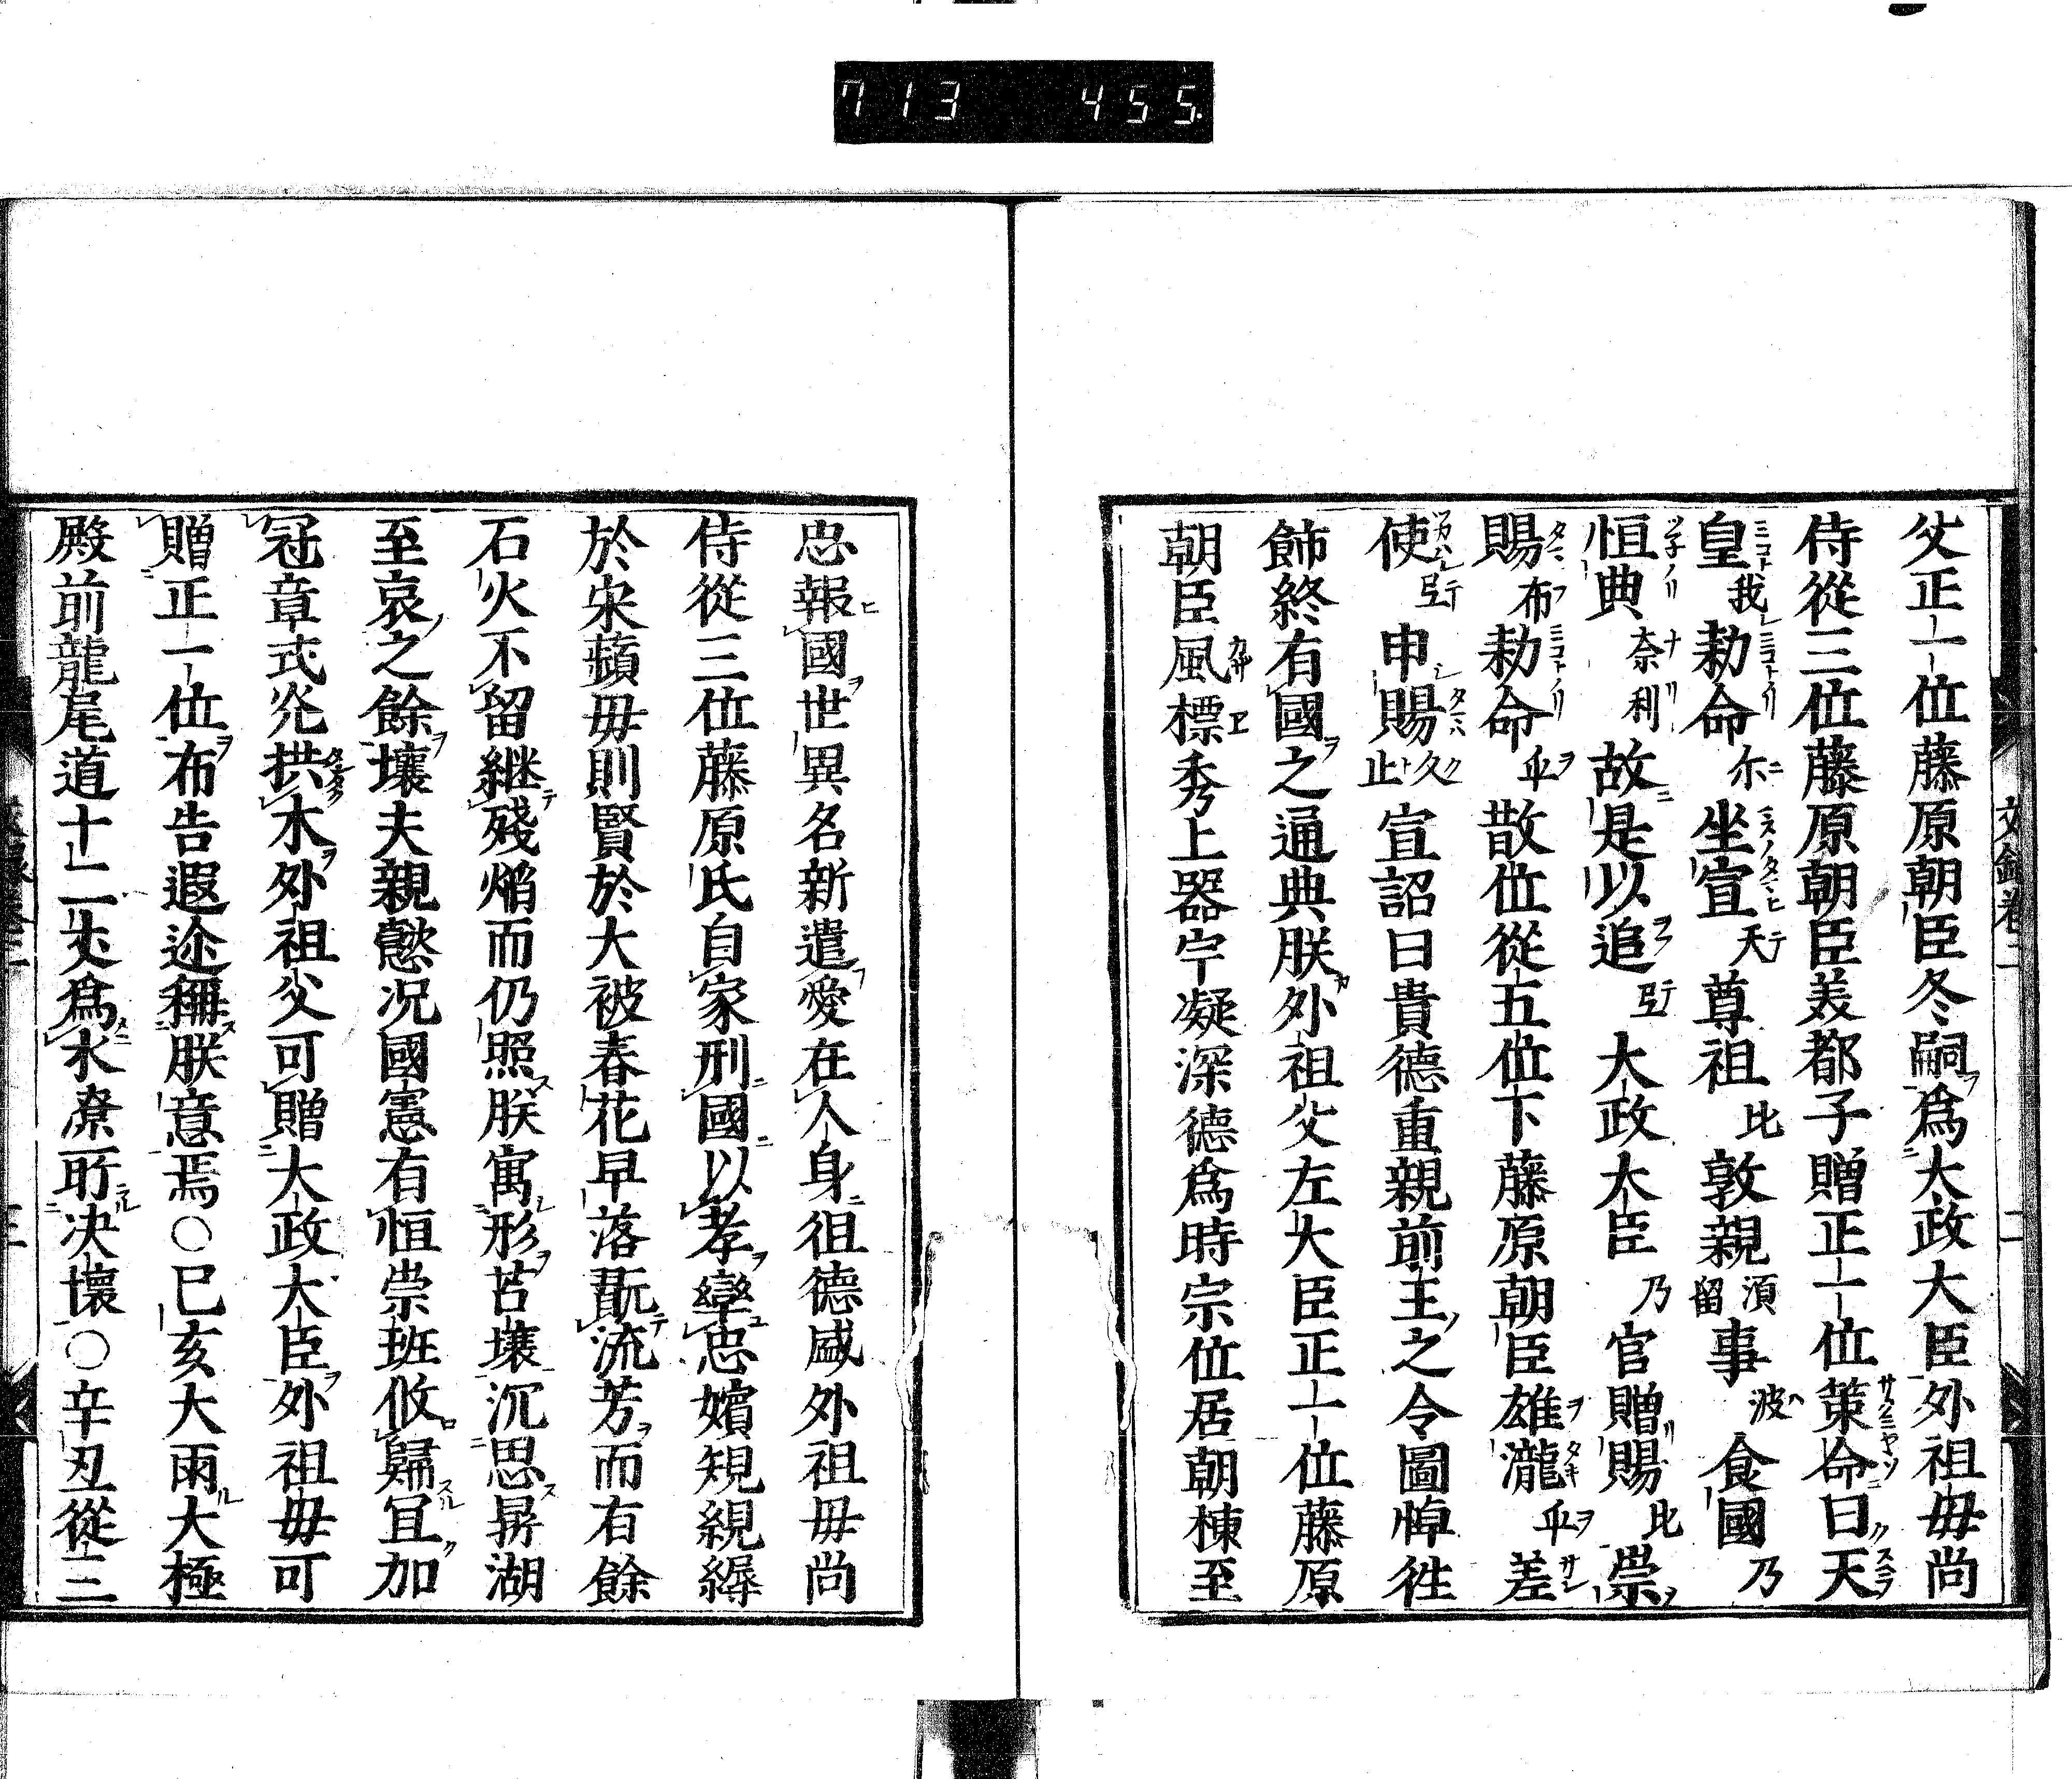 713 455
文錄卷二
二
父正一位藤原朝臣冬嗣爲大政大臣外祖母尚
侍從三位藤原朝臣美都子贈正一位策命曰天
皇我勅命尓坐宣天尊祖比敦親須留事波食國乃
恒典奈利故是以追弖大政大臣乃官贈賜比崇
賜布勅命乎散位從五位下藤原朝臣雄瀧乎差
使弖申賜久止宣詔曰貴德重親前王之令圖悼徃
飾終有國之通典朕外祖父左大臣正一位藤原
朝臣風標秀上器宇凝深德爲時宗位居朝棟至
忠報國世異名新遣愛在人身徂德盛外祖母尚
侍從三位藤原氏自家刑國以孝變忠嬪規緄縟
於宋蘋毋則賢於大被春花早落翫流芳而有餘
石火不留継殘焔而仍照朕寓形苫壤沉思昇湖
至哀之餘壞夫親懿况國憲有恒崇班攸歸宜加
冠章式光拱木外祖父可贈大政大臣外祖毋可
贈正一位布告遐迩稱朕意焉○巳亥大雨大極
殿前龍尾道十二丈爲水潦所决壞○辛丑從三
三